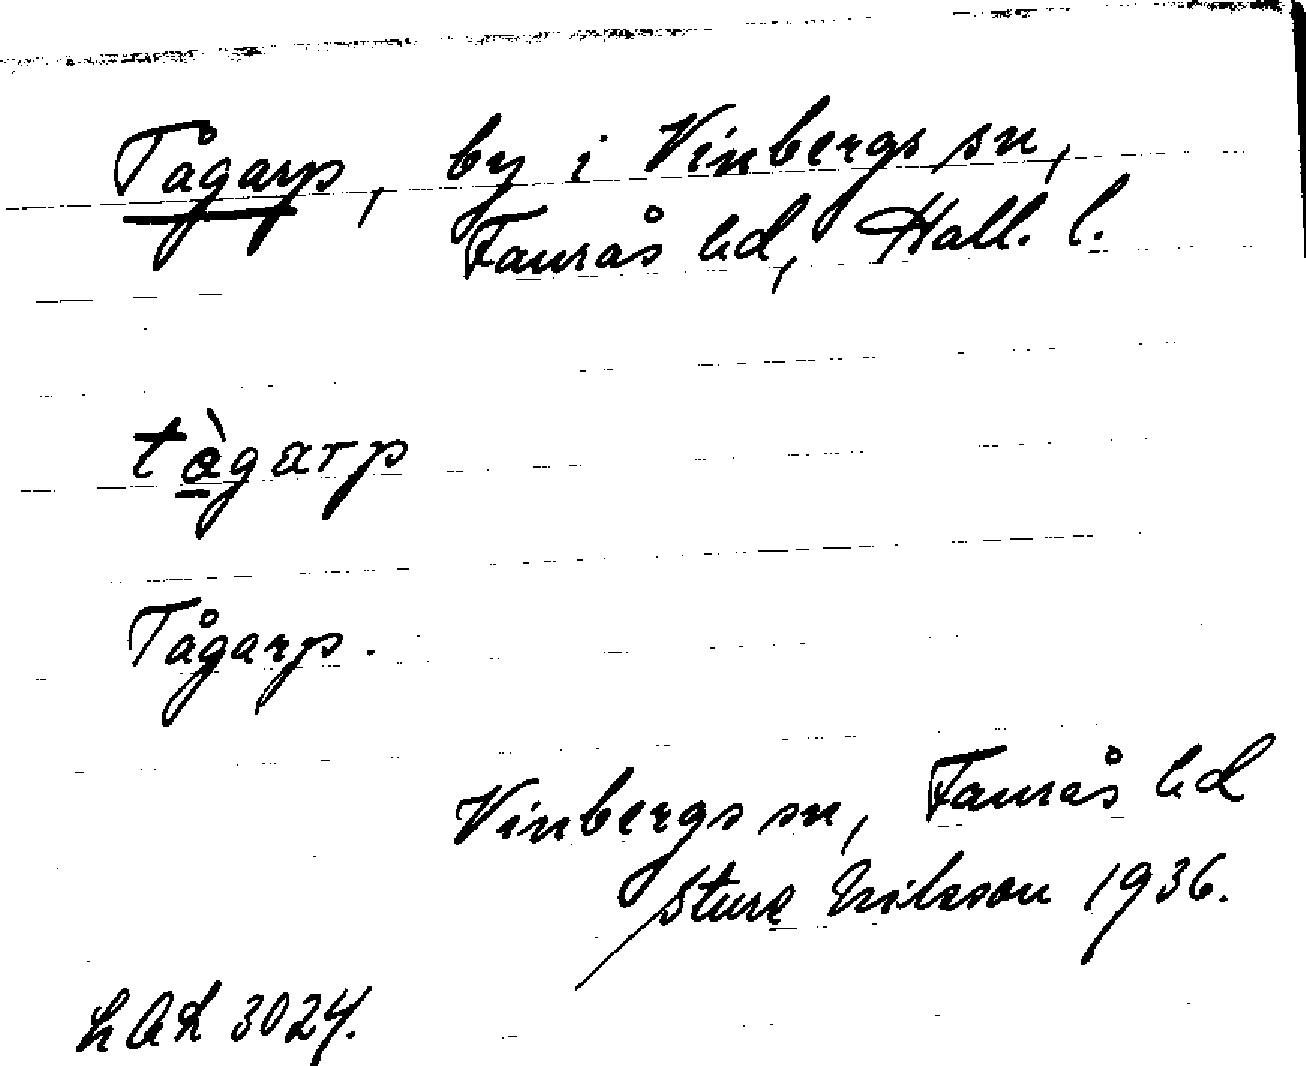 Tågarp, by i Vinbergs sn,
Faurås hd, Hall. l.
tàgarp
Tågarp.
Vinbergs sn, Faurås hd
Sture Nilsson 1936.
LAL 3024.